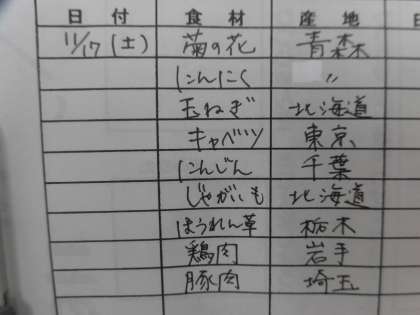 日 付 食 材 産 地
11/17(土) 菊の花 青森
にんにく 〃
玉ねぎ 北海道
キャベツ 東京
にんじん 千葉
じゃがいも 北海道
ほうれん草 栃木
鶏肉 岩手
豚肉 埼玉